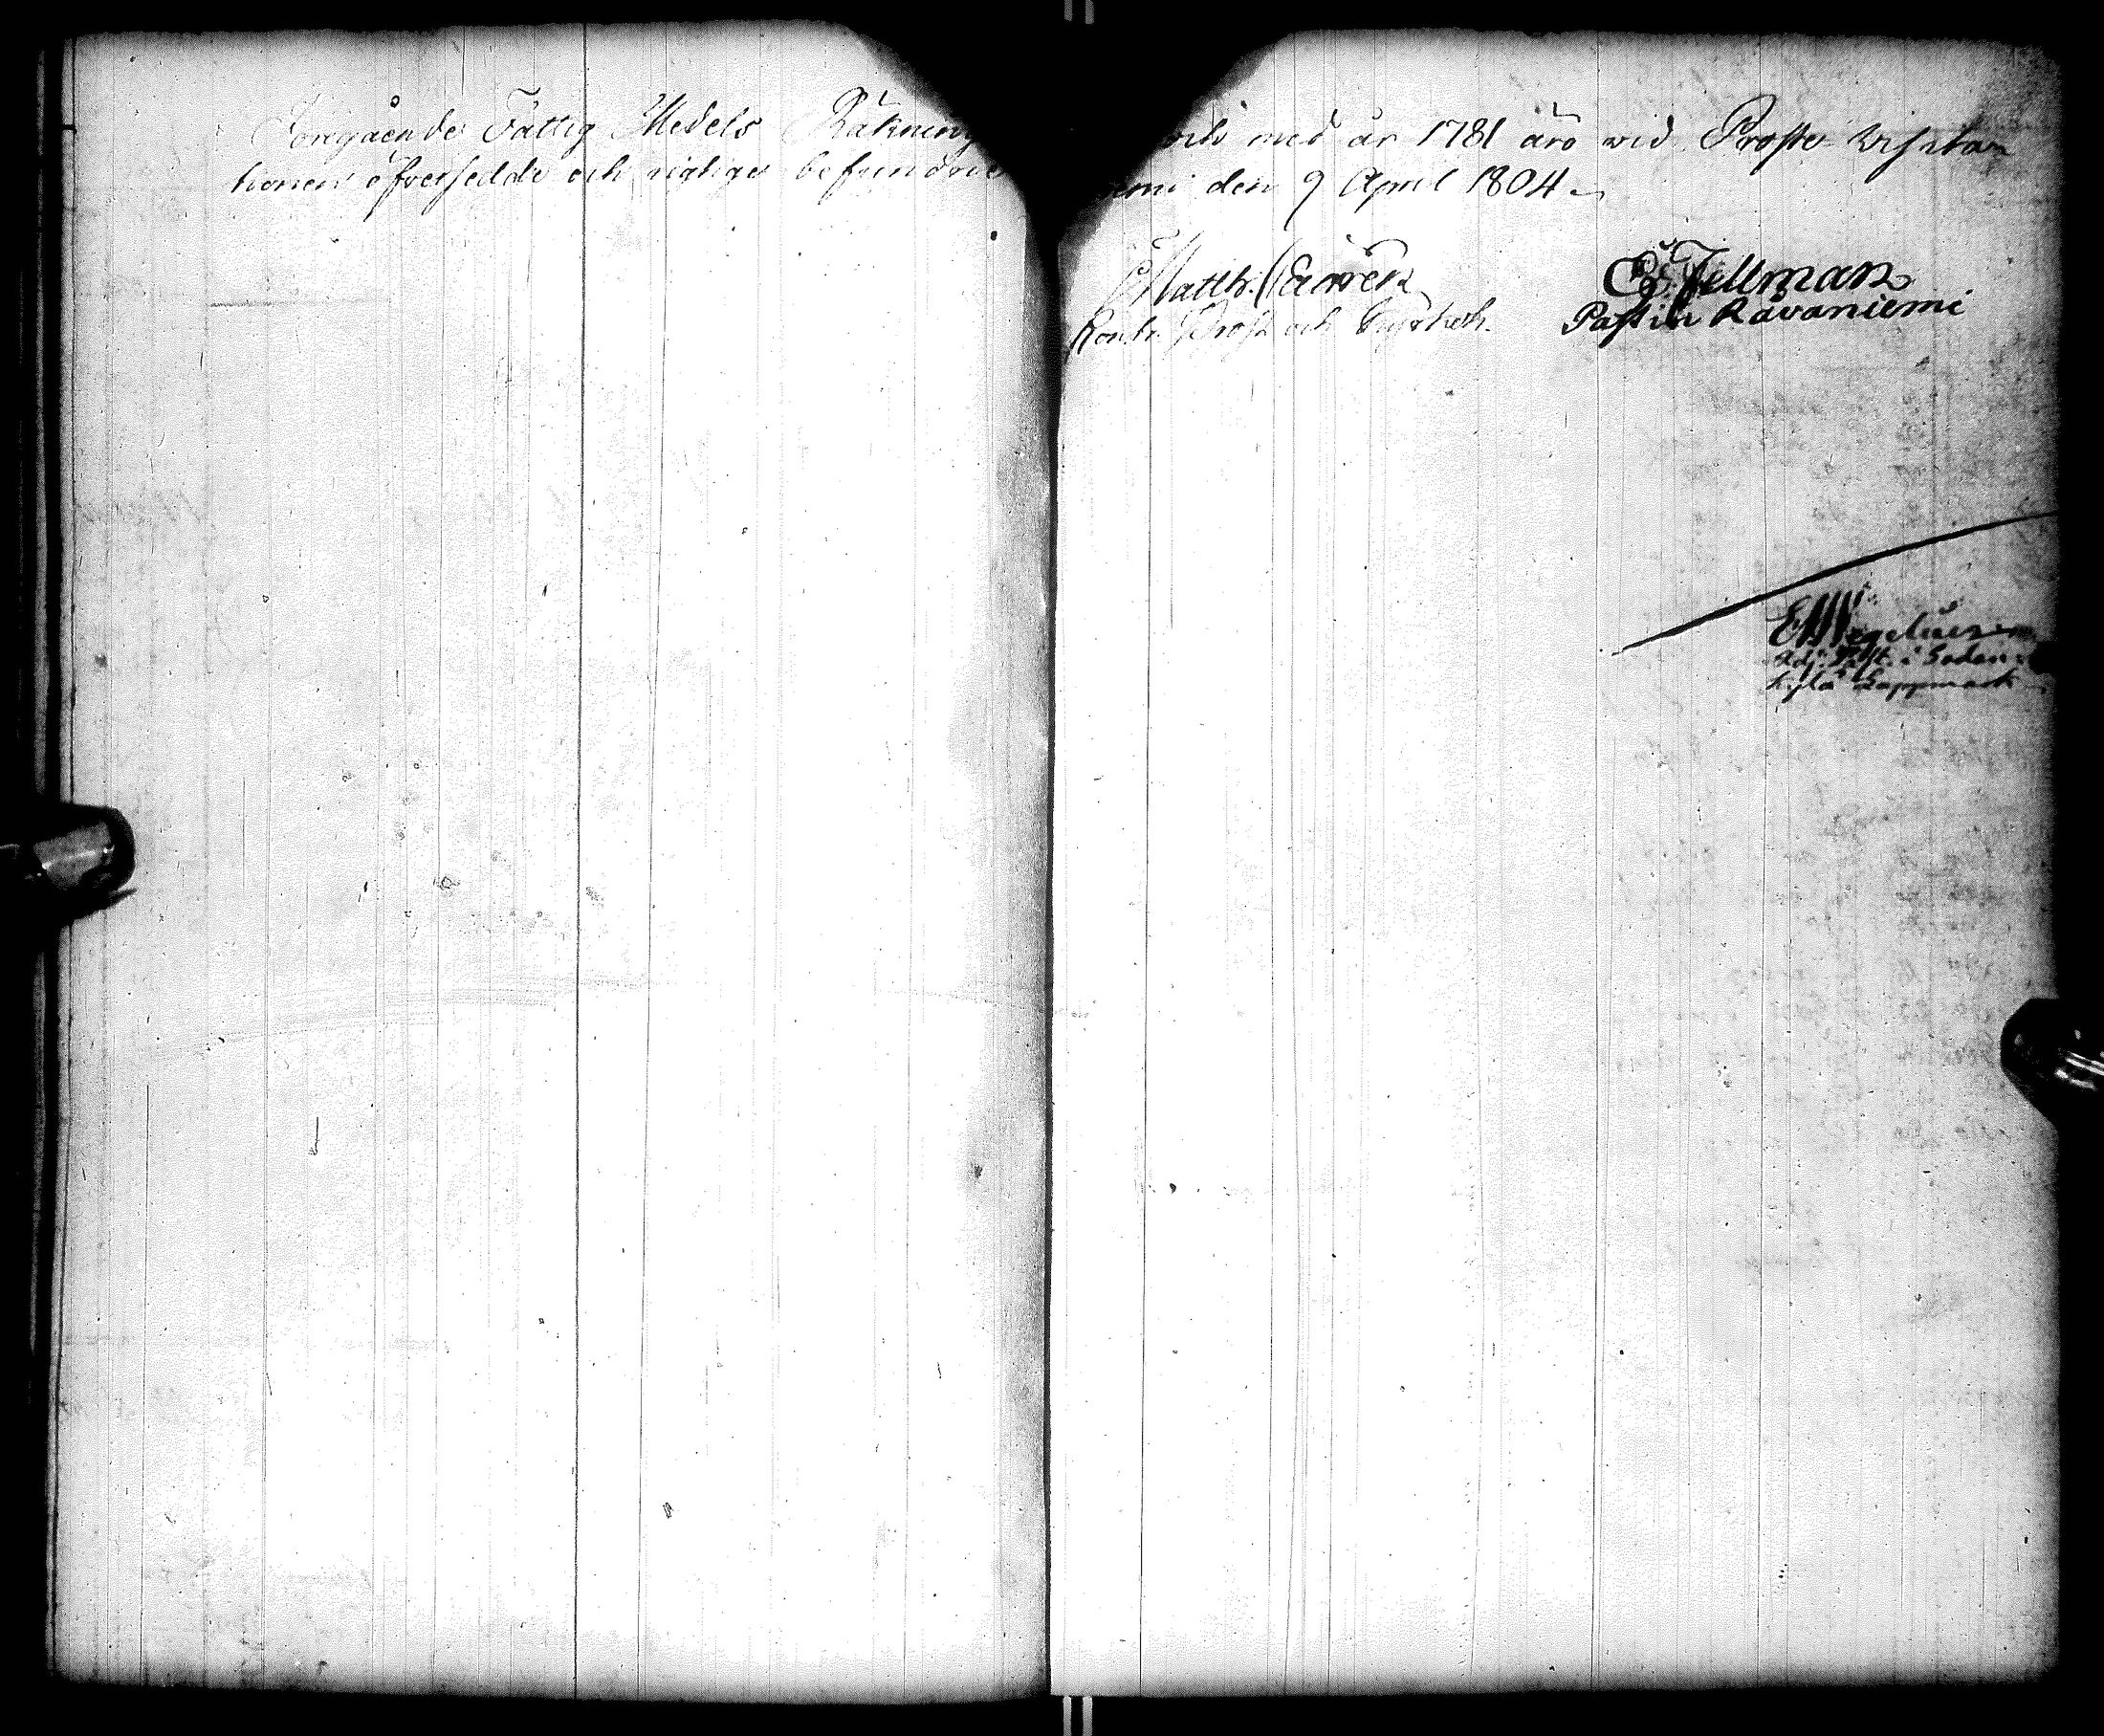 Foregående Fattig Medels Räkning och med år 1781 äro wid Proste Visita
tionen öfversedde och riktige befundne emi den 9 April 1804
Matth.
Kontr. Prost och Kyrkoh.
E. Fellman
Past. i Råvaniemi
Adj. Past. i Sodan
kyla Lappmark